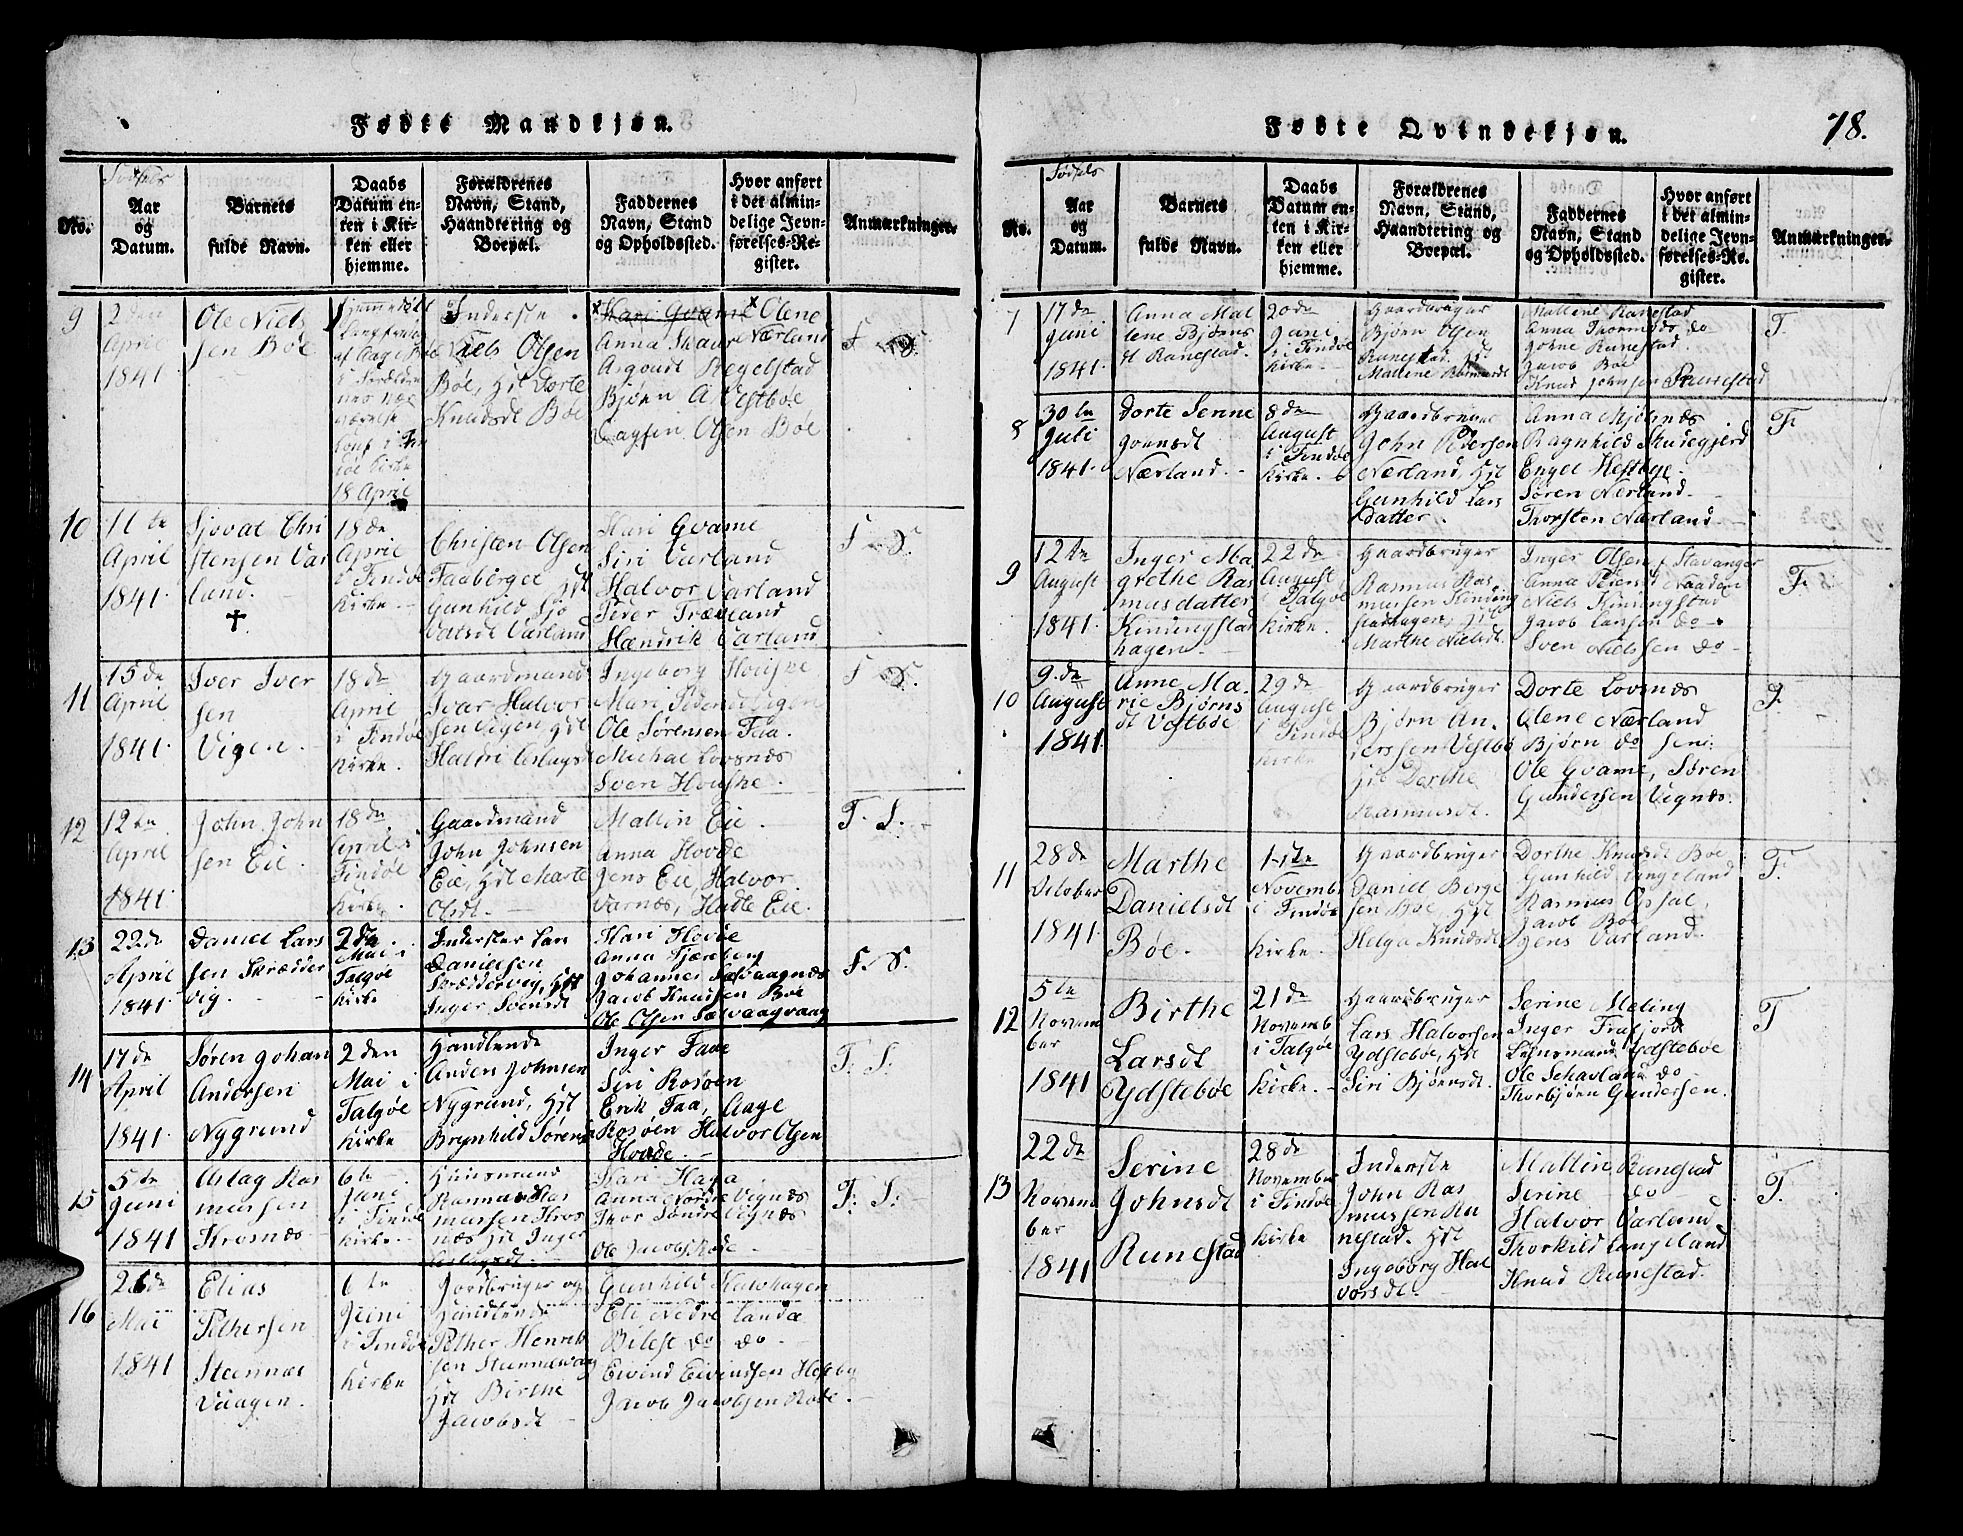 Fødte Mandkjøn.
No.
Fødsels
Aar
og
Datum.
Barnets
fulde Navn.
Daabs
Datum en-
ten i Kir-
ken eller
hjemme.
Forældrenes
Navn, Stand,
Haandtering og
Boepæl.
Faddernes
Navn, Stand
og Opholdssted.
Hvor anført
i det almin-
delige Jevn-
førelses-Re-
gister.
Anmærkninger.
9
2den
April
1841
Ole Niels
sen Bøe
18 April
Inderste
Niels Olsen
Bøe, Hst Dorte
Knudsdt Bøe
Kari Gvame Olene
Anna Nærland
Asgoudt Regelstad
Bjørn A Vestbøe
Olsen Bøe
F S.
10
11te
April
1841.
Sjovat Chri
stensen Var
land.
†
18de
April
i Findøe
Kirke.
Christen Olsen
Faaberget Hst
Gunhild Sjo
vatsdt Varland
Kari Gvame
Siri Varland
Halvor Varland
Peder Træeland
Hændrik Varland
F S.
11
15de
April
1841.
Iver Iver
sen
Vigen.
18de
April
i Findøe
Kirke.
Gaardmand
Ivar Halvor
sen Vigen Hst
Ingeborg Houske
Mari Vigen
Ole Sørensen Faa.
Michal Lovsnæs
Sven Houske.
F S.
12
12te
April
1841.
John John
sen Eie.
18de
April i
Findøe
Kirke.
Gaardmand
John Johnsen
Eie, Hst Marte
Olsdt.
Mallin Eie.
Anna Hovde
Jens Eie, Halvor
Varnæs, Hadle Eie.
F. S.
13
22de
April
1841.
Daniel Lars
sen Skrædder
vig.
2de
Mai i
Talgøe
Kirke
Inderster Lars
Danielsen
Skræddervig, Hst
Inger Svensdt
Kari Hovde
Anna Fjæreberg
Johannes Sælvaagnæs
Jacob Knudsen Bøe
Ole Olsen Sælvaagvaag
F. S.
14
17de
April
1841.
Søren Johan
Andersen
Nygrund
2den
Mai i
Talgøe
Kirke
Handlende
Anders Johnsen
Nygrund, Hst
Brynhild Sørens
Inger Faae
Siri Rosøen
Erik Faa, Aage
Rosøen Halvor Olsen
Hovde.
F. S.
15
5te
Juni
1841
Aslag Ras
mussen
Krosnæs
6te
Juni
i Findøe
Kirke.
Huusmand
Rasmus Ras
mussen Kros
næs Hst Inger
Aslagsdt
Kari Haga
Anna Nordre Vignæs
Thor Søndre Vignæs
Ole Jacobs Rode
F. S.
16
26de
Mai
1841
Elias
Pethersen
Steennæs
Vaagen.
6te
Juni
i Findøe
Kirke
Jordbruger og
Handlende
Pether Henrik
sen Steennesvaag
Hst Birthe
Jacobsdt
Gunhild Kalvhagen
Eli Nedre Landa
Bilest do do
Eivind Eivinssen Hestbø
Jacob Jacobsen Rode.
Fødte Qvindekjøn.
78.
No.
Fødsels
Aar
og
Datum.
Barnets
fulde Navn.
Daabs
Datum en-
ten i Kir-
ken eller
hjemme.
Forældrenes
Navn, Stand,
Haandtering og
Boepæl.
Faddernes
Navn, Stand
og Opholdssted.
Hvor anført
i det almin-
delige Jevn-
førelses-Re-
gister.
Anmærkninger.
7
17de
Juni
1841.
Anna Mal
lene Bjørns
dt Ranestad.
20de
Juni
i Findøe
Kirke.
Gaardbruger
Bjørn Olsen
Runestad. Hst
Mallene Rasmusdt
Mallene Ranestad
Anna Thormods do
Johne Runestad.
Jacob Bøe
Knud Johnsen Runestad
F.
8
30te
Juli
1841.
Dorte Serine
Joensdt
Nærland.
8de
August
i Findøe
Kirke.
Gaardbruger
John Pedersen
Nærland, Hst
Gunhild Lars
datter.
Anna Mjølsnæs
Ragnhild Skudegjerd
Engel Hestbye.
Søren Nærland.
Thorsten Nærland
F.
9
12te
August
1841.
Inger Ma
grethe Ras
musdatter
Kiningstad
hagen
22de
August
i Talgøe
Kirke.
Gaardbruger
Rasmus Ras
mussen Kining
stadhagen, Hst
Marthe Nielsdt.
Inger Olsen f Stavanger
Anna Pedersdt Naadøn
Niels Kiningstad
Jacob Larsen do
Sven Nielssen do
F.
10
9de
August
1841.
Anne Ma
rie Bjørns
dt Vestbøe
29de
August
i Findøe
Kirke
Gaardbruger
Bjørn An
derssen Vestbø
Hst Dorthe
Rasmusdt.
Dorte Lovsnæs
Olene Nærland
Bjørn do seni:
Ole Gvame, Søren
Gundersen Vignæs.
F.
11
28de
October
1841.
Marthe
Danielsdt
Bøe.
1ste
Novemb
i Findøe
Kirke.
Gaardbruger
Daniel Børge
sen Bøe, Hst
Helga Knudsdt
Dorthe Knudsdt Bøe
Gunhild Langeland
Rasmus Opsal,
Jacob Bøe
Jens Varland.
F.
12
5te
Novem
ber
1841
Birthe
Larsdt
Ydstebøe
21de
Novemb
i Talgøe
Kirke.
Gaardbruger
Lars Halvorsen
Ydstebøe, Hst
Siri Bjørnsdt.
Serine Meling
Inger Frafjord
Lensmand Ydstebøe
Ole Schavland do
Thorbjørn Gundersen.
F
13
22de
Novem
ber
1841
Serine
Johnsdt
Runestad
28de
November
i Findøe
Kirke
Inderste
John Ras
mussen Ru
nestad. Hst
Ingeborg Hal
vorsdt.
Mallin Runestad
Serine do
Halvor Varland
Thorkild Langeland
Knud Runestad.
F.